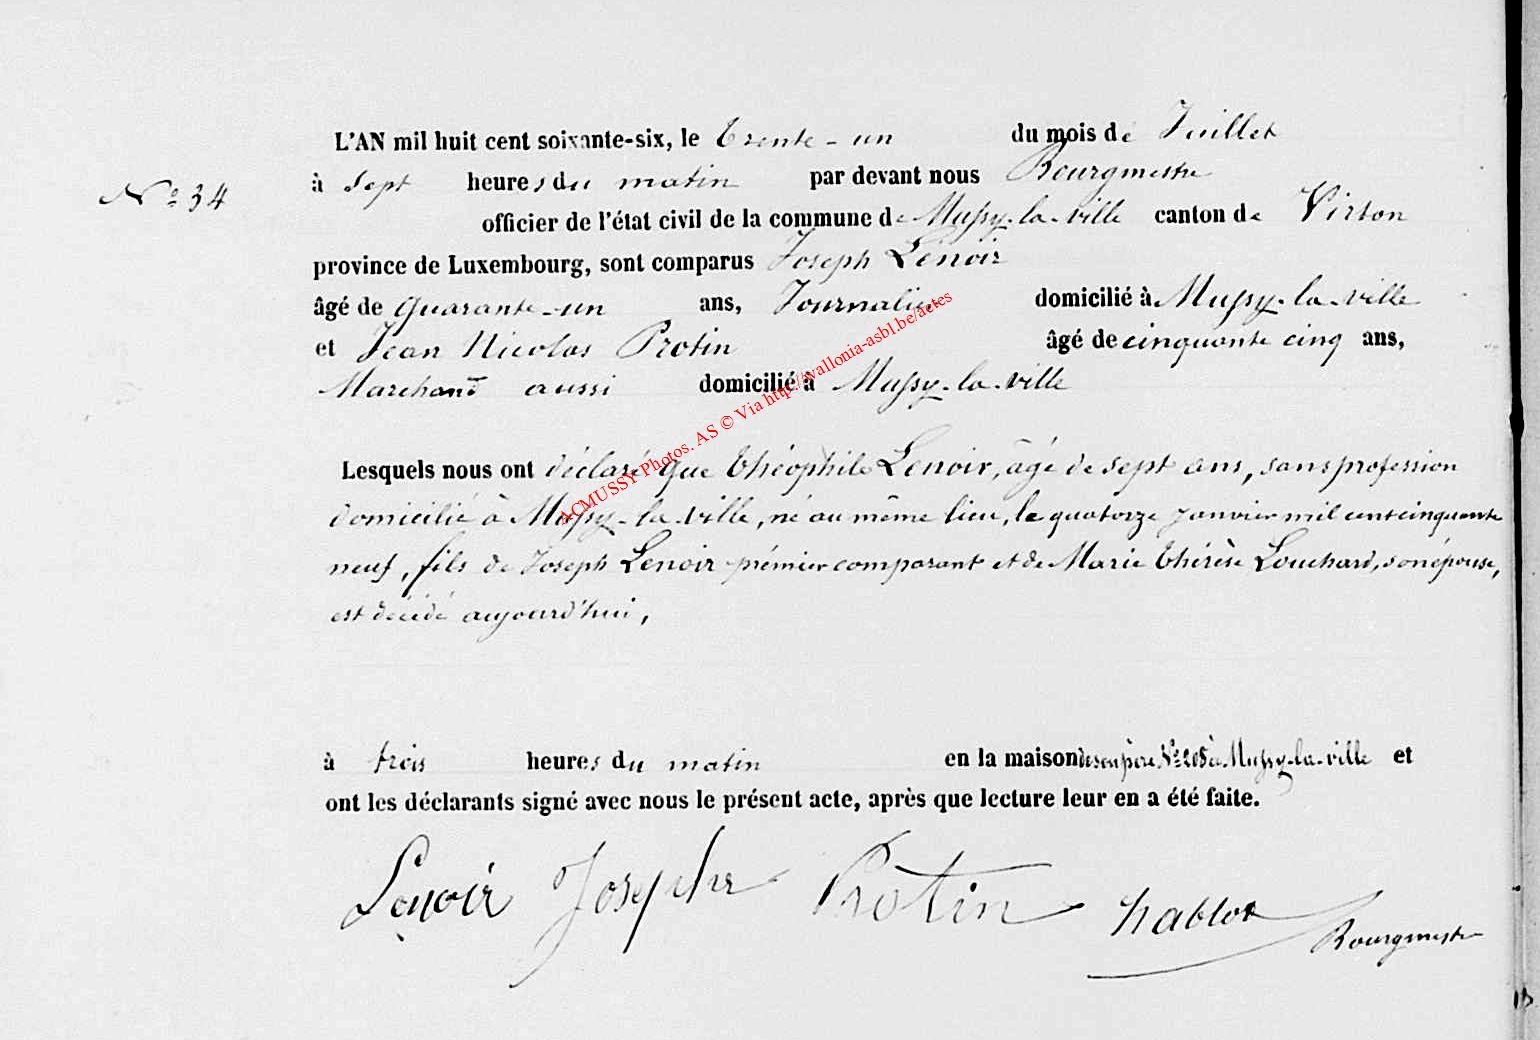 L'AN mil huit cent soixante-six, le trente-un du mois de Juillet
N° 34
à sept heures du matin par devant nous Bourgmestre
officier de l'état civil de la commune de Mussy-la-ville canton de Virton
province de Luxembourg, sont comparus Joseph Lenoir
âgé de quarante-un ans, Journalier domicilié à Mussy-la-ville
et Jean Nicolas Protin âgé de cinquante cinq ans,
Marchand aussi domicilié à Mussy-la-ville
ACMUSSY Photos. AS © Via http://wallonia-asbl.be/actes
Lesquels nous ont déclaré que théophile Lenoir, âgé de sept ans, sans profession
domicilié à Mussy-la-ville, né au même lieu, le quatorze janvier mil cent cinquante
neuf, fils de Joseph Lenoir prémier comparant et de Marie thérèse Louchard, son épouse,
est décédé aujourd'hui,
à trois heures du matin en la maison de son père N° 208 à Mussy-la-ville et
ont les déclarants signé avec nous le présent acte, après que lecture leur en a été faite.
Lenoir Joseph Protin hablot
Bourgmestre